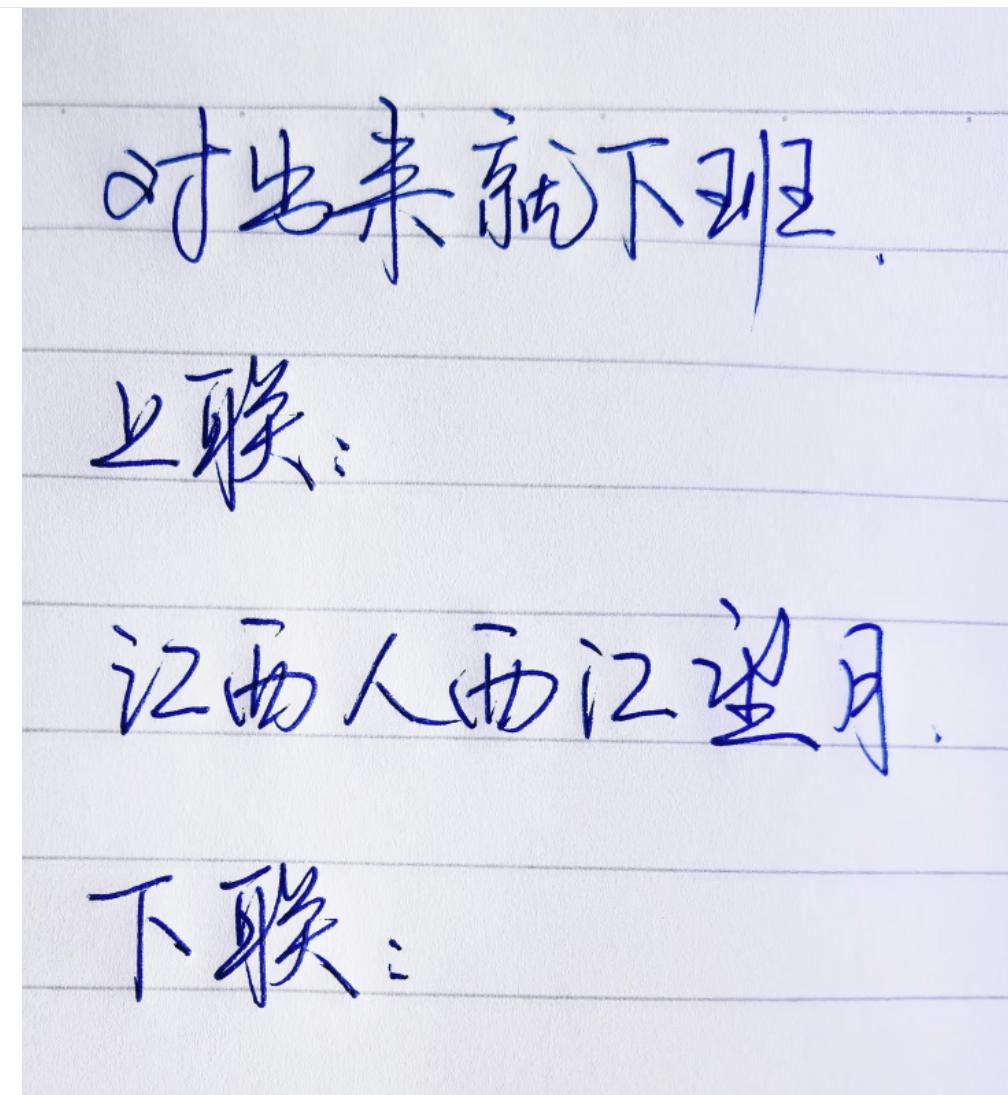 对出来就下班.
上联:
江西人西江望月.
下联: